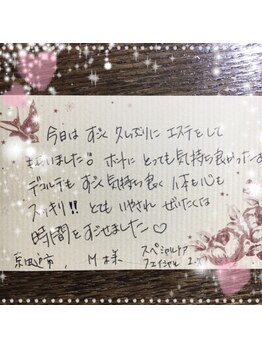 今日は すごく久しぶりに エステをして
もらいました。 ホントに とっても気持ち良かったぁ
デコルテも すごく気持ち良く 体も心も
スッキリ!! とても いやされ ぜいたくな
時間を すごせました♡
市 M様 スペシャルケア
フェイシャル